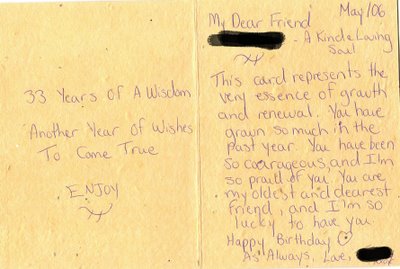 33 Years Of A Wisdom
Another Year Of Wishes
To Come True
ENJOY
My Dear Friend May/06
- A Kind & Loving
Soul
This card represents the
very essence of growth
and renewal. You have
grown so much in the
past year. You have been
so courageous, and I'm
so proud of you. You are
my oldest and dearest
friend, and I'm so
lucky to have you.
Happy Birthday
As Always, Love,